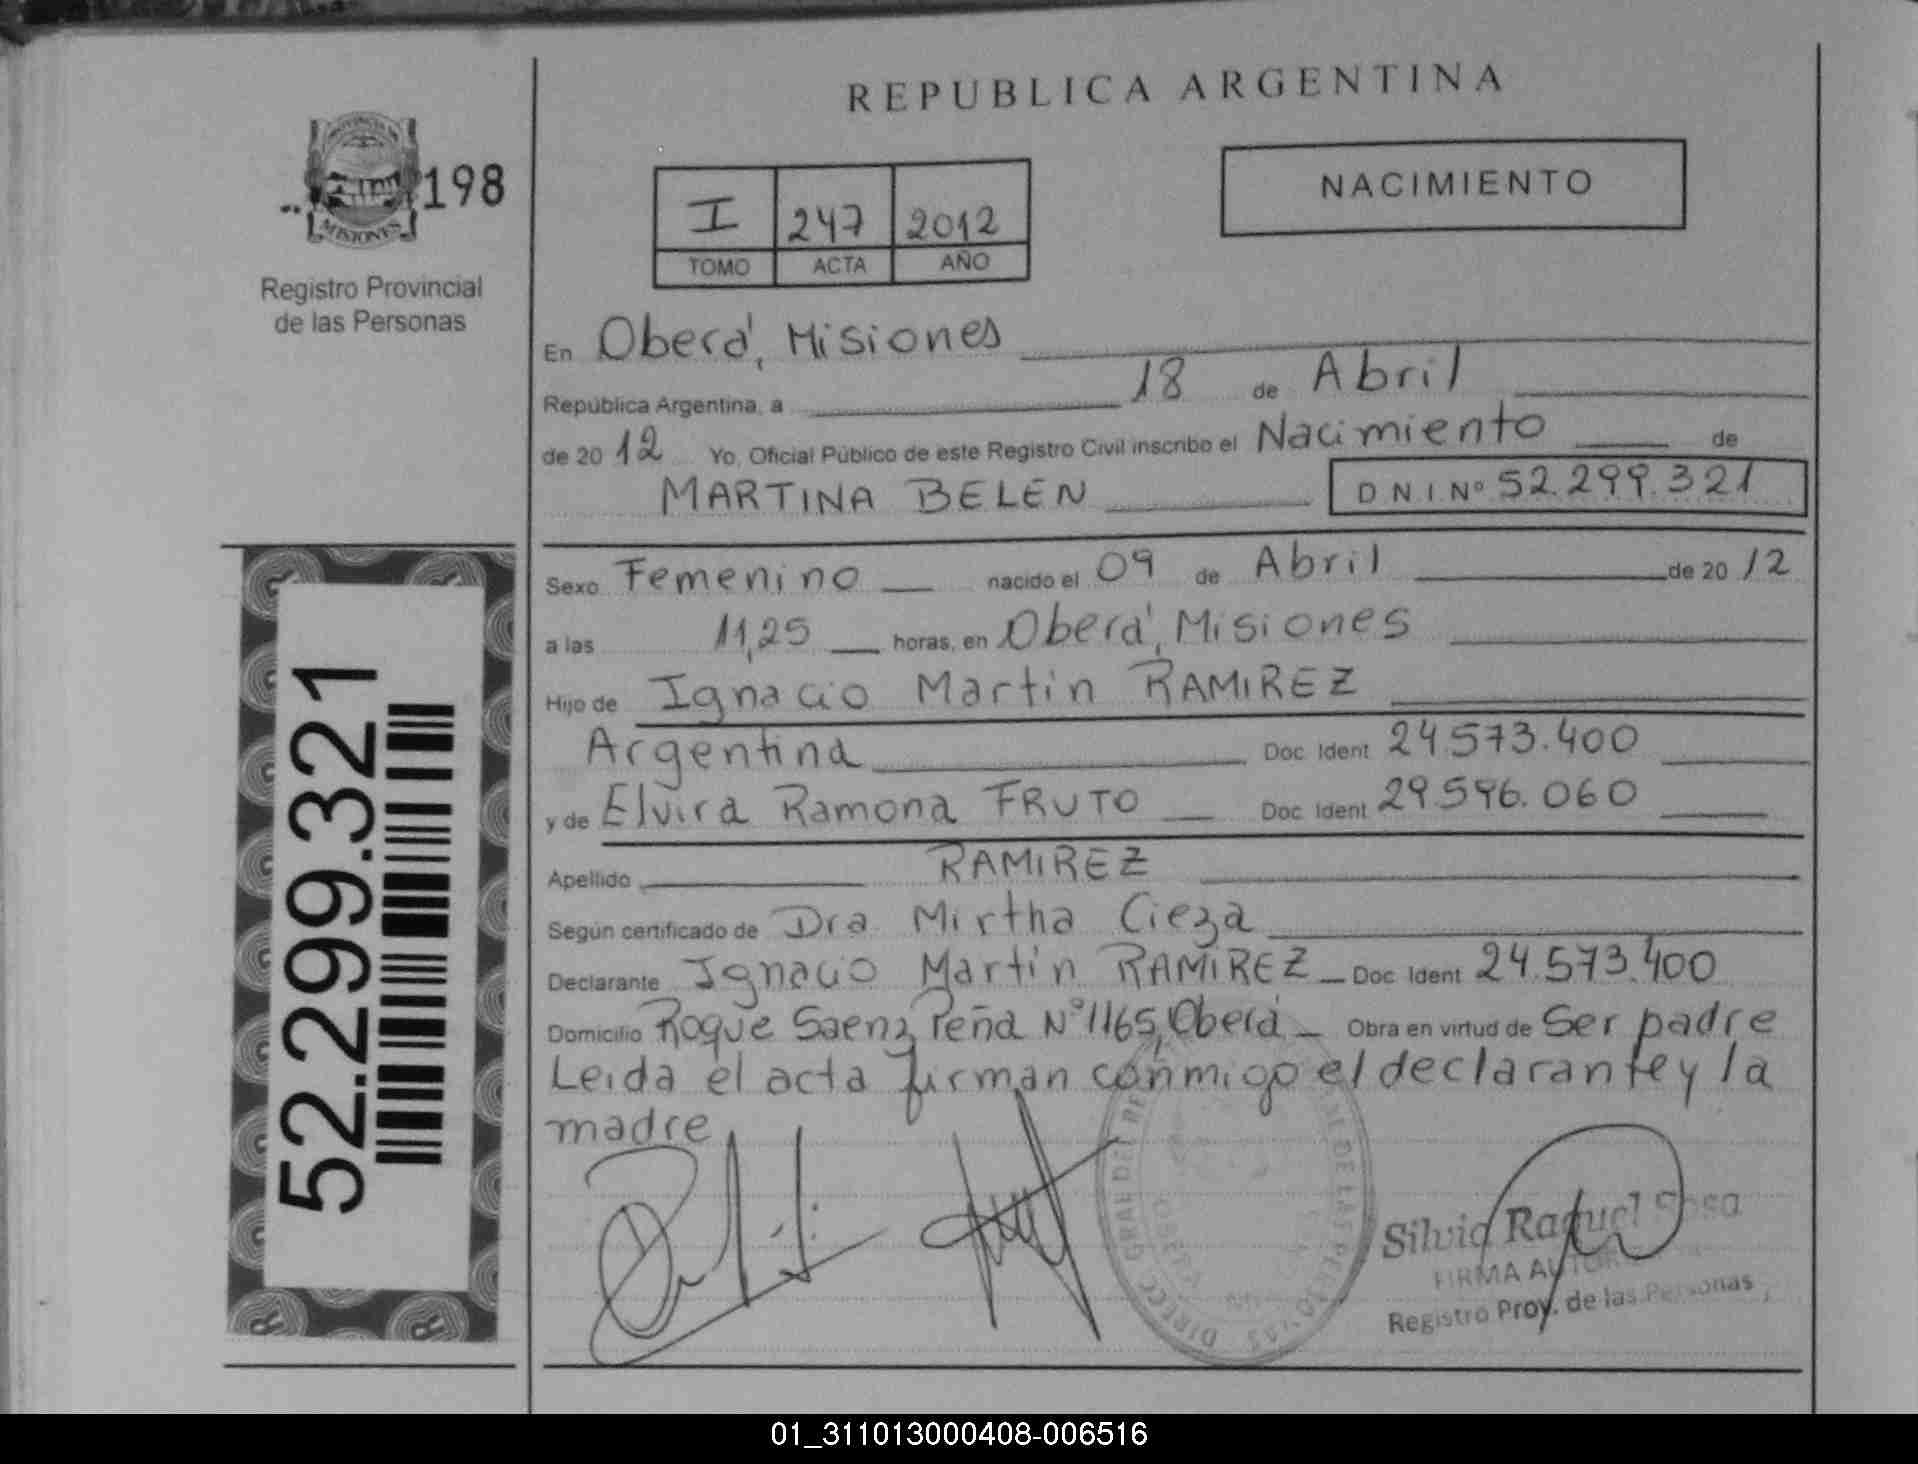 REPUBLICA ARGENTINA
PROVINCIA DE
MISIONES
198
Registro Provincial
de las Personas
I 247 2012
TOMO ACTA AÑO
NACIMIENTO
En Oberá, Misiones
República Argentina, a 18 de Abril
de 20 12 Yo, Oficial Público de este Registro Civil inscribo el Nacimiento de
MARTINA BELEN DNI Nº 52.299.321
Sexo Femenino nacido el 09 de Abril de 20 12
a las 11,25 horas, en Oberá, Misiones
Hijo de Ignacio Martin RAMIREZ
Argentina Doc. Ident 24.573.400
y de Elvira Ramona FRUTO Doc. Ident 29.596.060
Apellido RAMIREZ
Según certificado de Dra Mirtha Cieza
Declarante Ignacio Martin RAMIREZ Doc. Ident 24.573.400
Domicilio Roque Saenz Peña Nº 1165, Oberá Obra en virtud de Ser padre
Leida el acta firman conmigo el declarante y la
madre
52.299.321
Silvia Raquel Sosa
FIRMA
Registro Prov. de las Personas
01_311013000408-006516